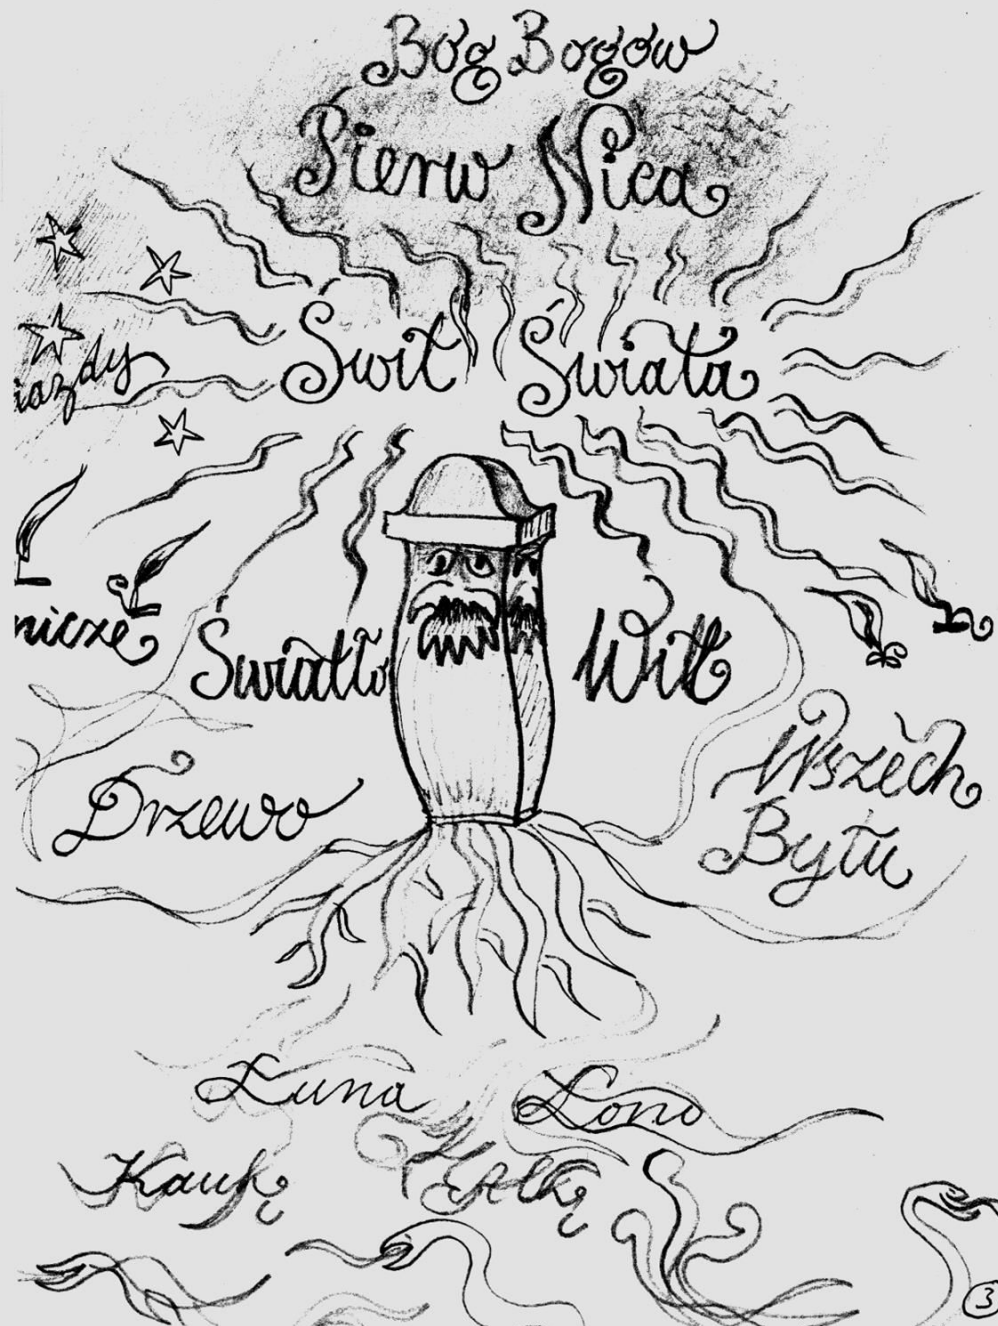 Bóg Bogów
Pierw Nica
Świt Świata
iazdy
nicze
Światło Wit
Drzewo
Wszech
Bytu
Łuna Łono
Kauką
Hałką
3